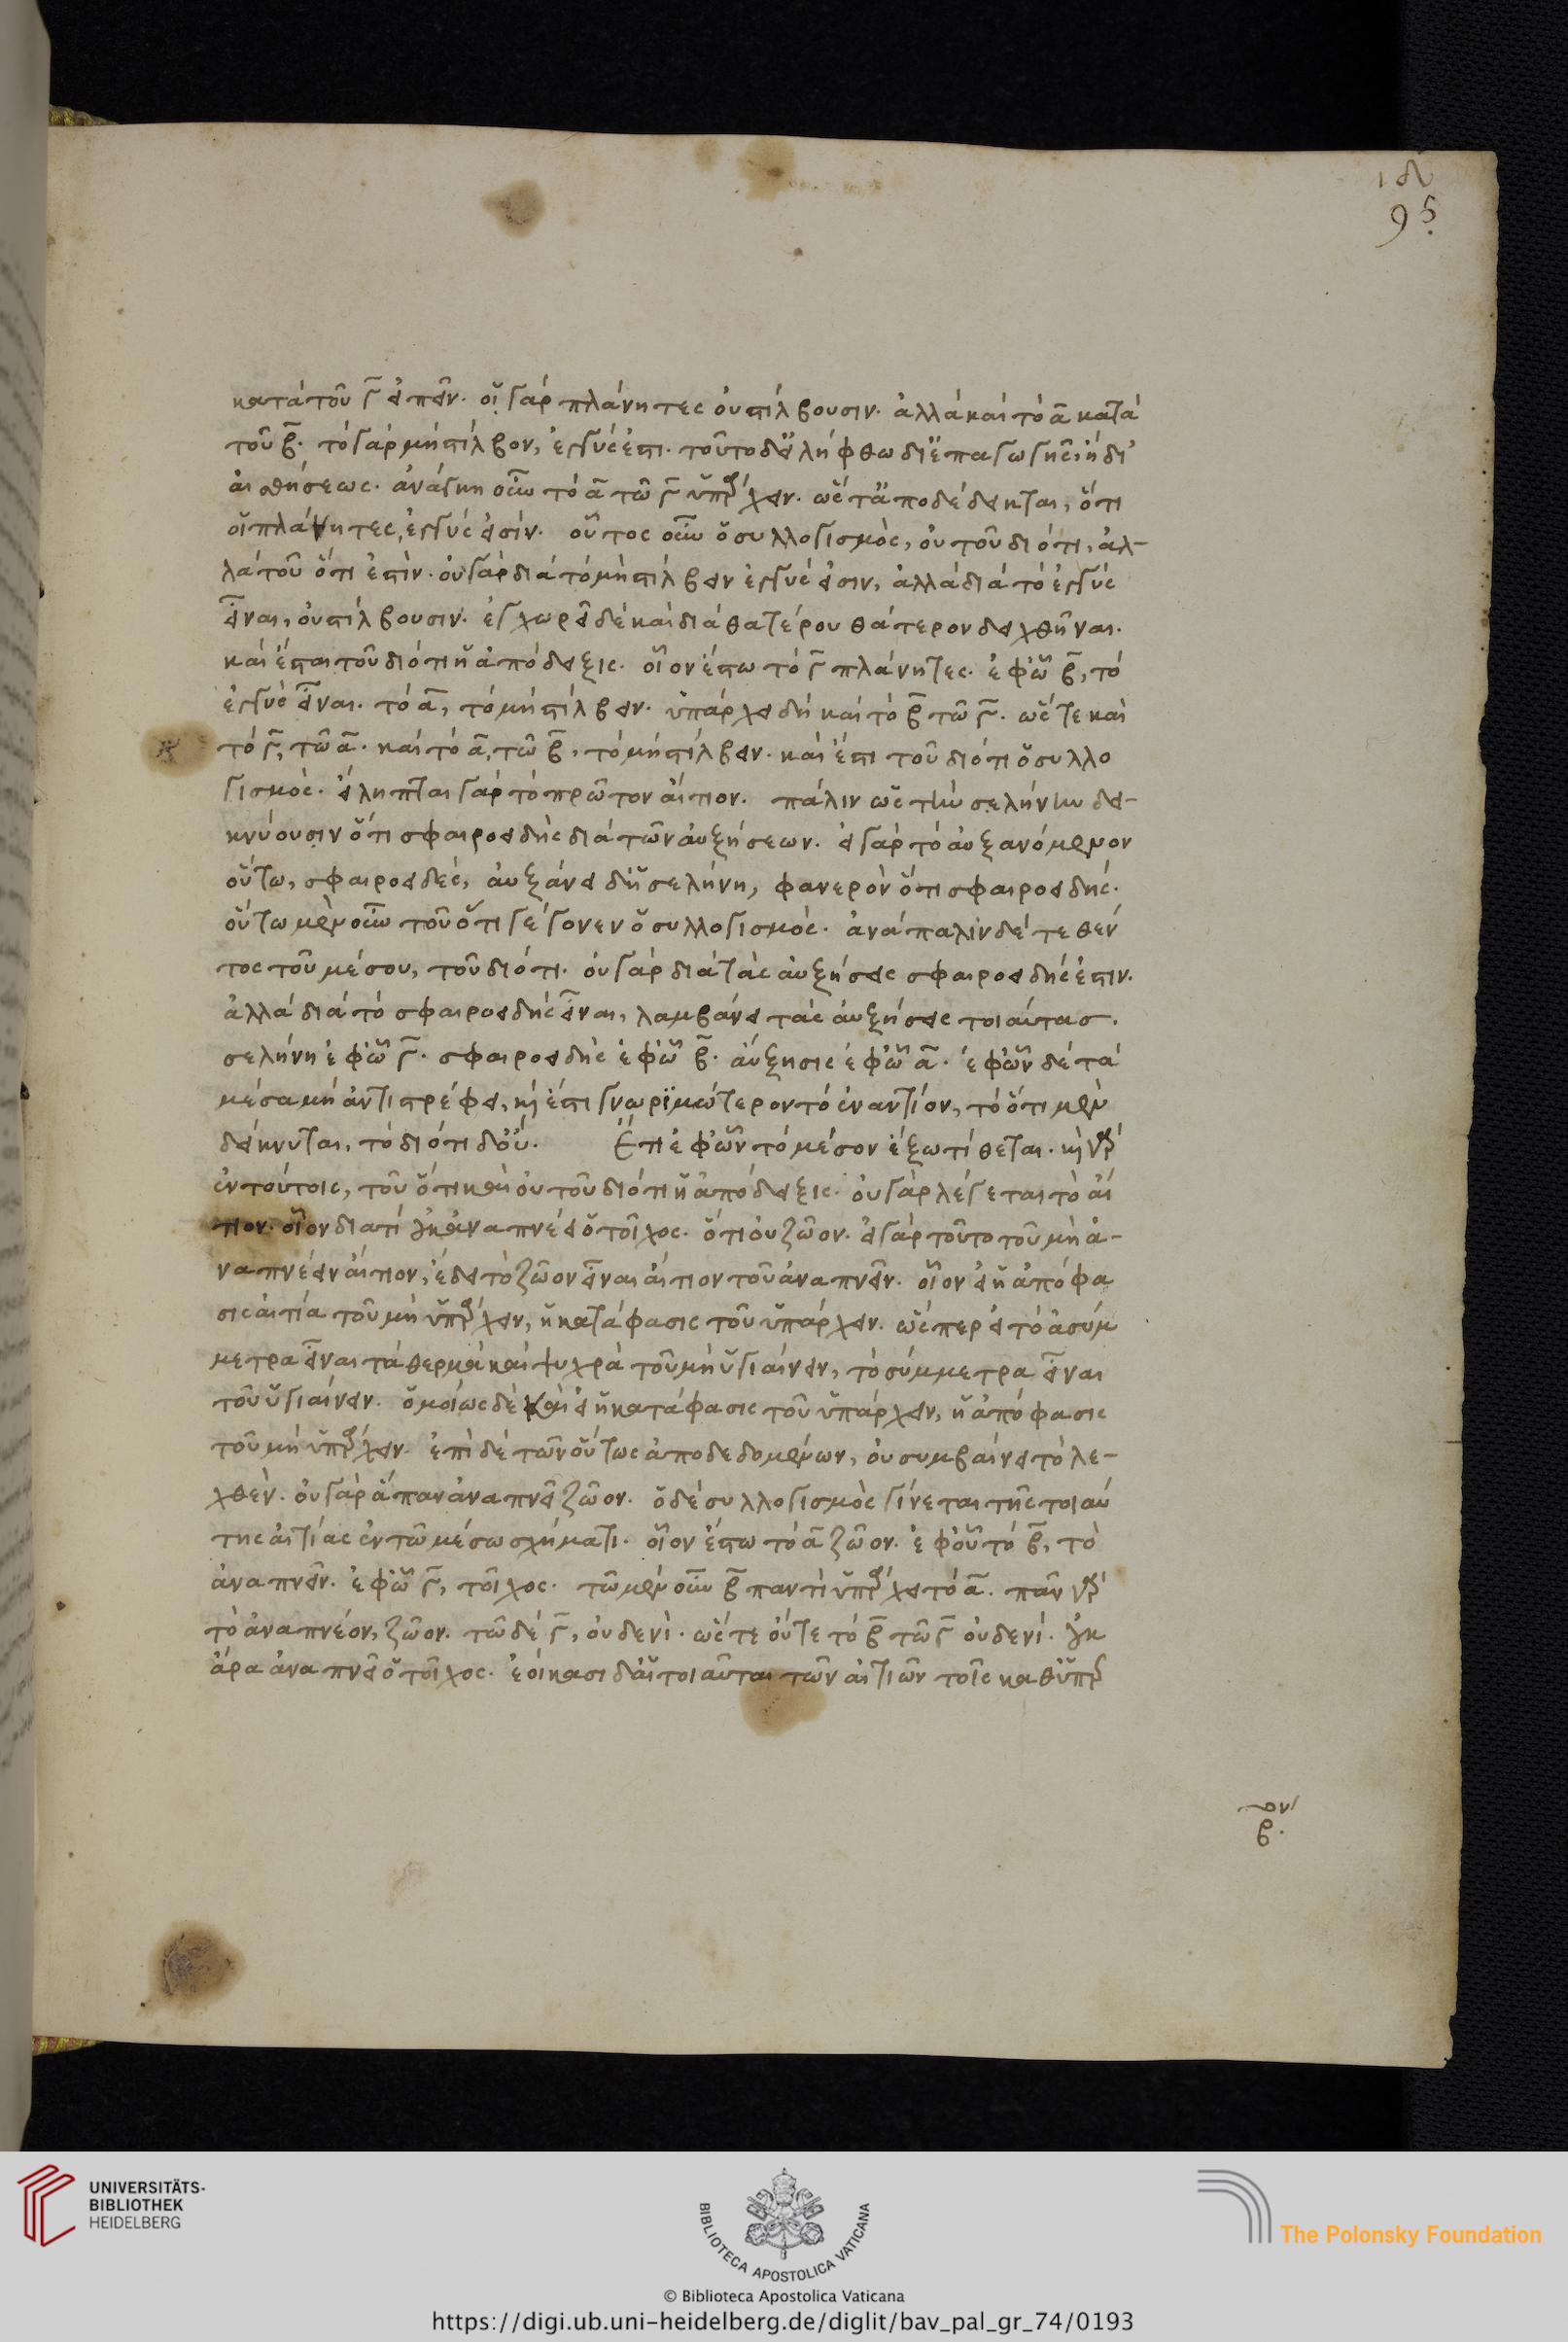 ιδ
95.
κατὰ τοῦ γ̅ εἰπεῖν. οἱ γὰρ πλάνητες οὐ στίλβουσιν. ἀλλὰ καὶ τὸ α̅ κατὰ
τοῦ β̅. τὸ γὰρ μὴ στίλβον, ἐγγύς ἐστι. τοῦτο δ' εἰλήφθω δι' ἐπαγωγῆς, ἢ δι'
αἰσθήσεως. ἀνάγκη οὖν τὸ α̅ τῶ γ̅ ὑπάρχειν. ὥστ' ἀποδέδεικται, ὅτι
οἱ πλάνητες, ἐγγύς εἰσίν. οὗτος οὖν ὁ συλλογισμὸς, οὐ τοῦ διότι, ἀλ-
λὰ τοῦ ὅτι ἐστὶν. οὐ γὰρ διὰ τὸ μὴ στίλβειν ἐγγύς εἰσιν, ἀλλὰ διὰ τὸ ἐγγὺς
εἶναι, οὐ στίλβουσιν. ἐγχωρεῖ δὲ καὶ διὰ θατέρου θάτερον δειχθῆναι.
καὶ ἔσται τοῦ διότι ἡ ἀπόδειξις. οἷον ἔστω τὸ γ̅ πλάνητες. ἐφ' ὧ β̅, τὸ
ἐγγὺς εἶναι. τὸ α̅, τὸ μὴ στίλβειν. ὑπάρχει δὴ καὶ τὸ β̅ τῶ γ̅. ὥστε καὶ
τὸ γ̅, τῶ α̅. καὶ τὸ α̅, τῶ β̅, τὸ μὴ στίλβειν. καὶ ἔστι τοῦ διότι ὁ συλλο
γισμὸς. εἴληπται γὰρ τὸ πρῶτον αἴτιον. πάλιν ὡς τὴν σελήνην δει-
κνύουσιν ὅτι σφαιροειδὴς διὰ τῶν αὐξήσεων. εἰ γὰρ τὸ αὐξανόμενον
οὕτω, σφαιροειδές, αὐξάνει δ' ἡ σελήνη, φανερὸν ὅτι σφαιροειδής.
οὕτω μὲν οὖν τοῦ ὅτι γέγονεν ὁ συλλογισμὸς. ἀνάπαλιν δὲ τεθέν
τος τοῦ μέσου, τοῦ διότι. οὐ γὰρ διὰ τὰς αὐξήσεις σφαιροειδής ἐστιν.
ἀλλὰ διὰ τὸ σφαιροειδὴς εἶναι, λαμβάνει τὰς αὐξήσεις τοιαύτας.
σελήνη ἐφ' ὧ γ̅. σφαιροειδὴς ἐφ' ὧ β̅. αὔξησις ἐφ' ὧ α̅. ἐφ' ὧν δὲ τὰ
μέσα μὴ ἀντιστρέφει, καὶ ἔστι γνωριμώτερον τὸ ἀναίτιον, τὸ ὅτι μὲν
δείκνυται, τὸ διότι δ' οὔ. Ἔτι ἐφ' ὧν τὸ μέσον ἔξω τίθεται. καὶ γὰρ
ἐν τούτοις, τοῦ ὅτι καὶ οὐ τοῦ διότι ἡ ἀπόδειξις. οὐ γὰρ λέγεται τὸ αἴ
τιον. οἷον διατί οὐκ ἀναπνέει ὁ τοῖχος. ὅτι οὐ ζῶον. εἰ γὰρ τοῦτο τοῦ μὴ ἀ-
ναπνέειν αἴτιον, ἔδει τὸ ζῶον εἶναι αἴτιον τοῦ ἀναπνεῖν. οἷον εἰ ἡ ἀπόφα
σις αἰτία τοῦ μὴ ὑπάρχειν, ἡ κατάφασις τοῦ ὑπάρχειν. ὥσπερ εἰ τὸ ἀσύμ
μετρα εἶναι τὰ θερμὰ καὶ ψυχρὰ τοῦ μὴ ὑγιαίνειν, τὸ σύμμετρα εἶναι
τοῦ ὑγιαίνειν. ὁμοίως δὲ καὶ εἰ ἡ κατάφασις τοῦ ὑπάρχειν, ἡ ἀπόφασις
τοῦ μὴ ὑπάρχειν. ἐπὶ δὲ τῶν οὕτως ἀποδεδομένων, οὐ συμβαίνει τὸ λε-
χθὲν. οὐ γὰρ ἅπαν ἀναπνεῖ ζῶον. ὁ δὲ συλλογισμὸς γίνεται τῆς τοιαύ
της αἰτίας ἐν τῶ μέσω σχήματι. οἷον ἔστω τὸ α̅ ζῶον. ἐφ' οὗ τὸ β̅, τὸ
ἀναπνεῖν. ἐφ' ὧ γ̅, τοῖχος. τῶ μὲν οὖν β̅ παντὶ ὑπάρχει τὸ α̅. πᾶν γὰρ
τὸ ἀναπνέον, ζῶον. τῶ δὲ γ̅, οὐδενὶ. ὥστε οὔτε τὸ β̅ τῶ γ̅ οὐδενί. οὐκ
ἄρα ἀναπνεῖ ὁ τοῖχος. ἐοίκασι δ' αἱ τοιαῦται τῶν αἰτιῶν τοῖς καθ' ὑπερ
β.
UNIVERSITÄTS-
BIBLIOTHEK
HEIDELBERG
BIBLIOTECA APOSTOLICA VATICANA
The Polonsky Foundation
© Biblioteca Apostolica Vaticana
https://digi.ub.uni-heidelberg.de/diglit/bav_pal_gr_74/0193